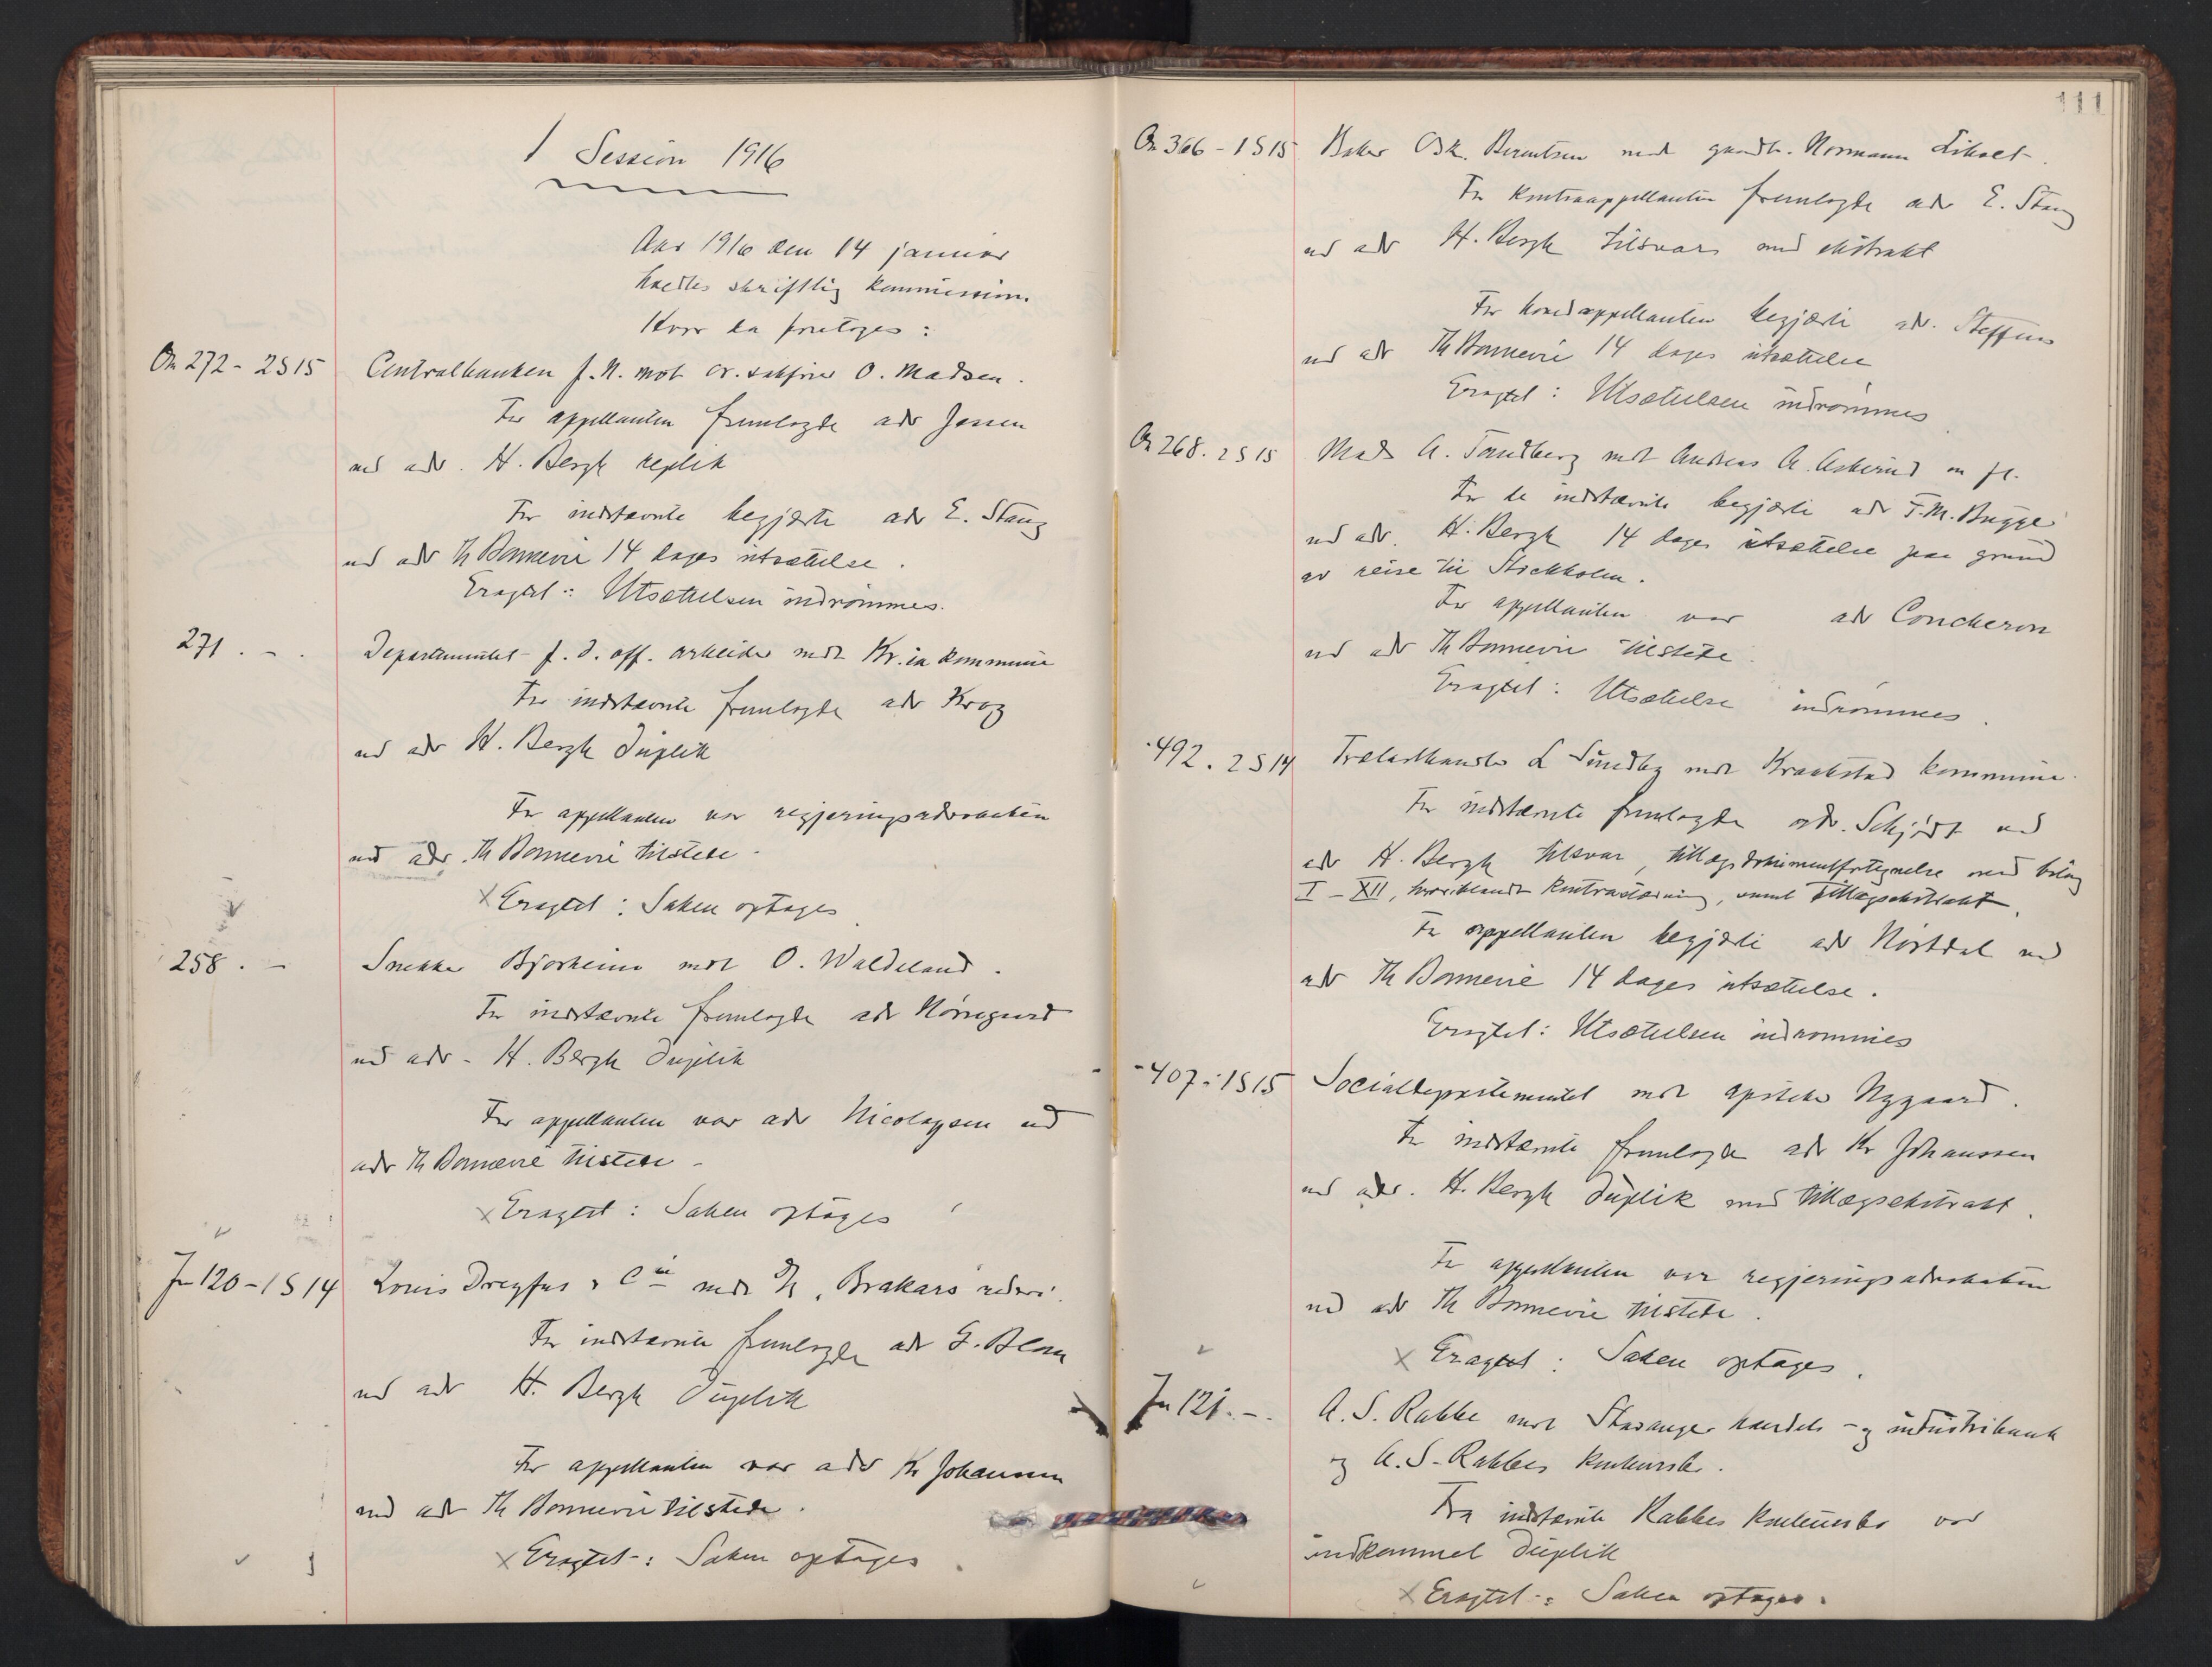 1 Session 1916
Aar 1916 den 14 januar
holdtes skriftlig kommission.
Hvor da foretoges:
On 272 - 2S15 Centralbanken f. N. mot O. Madsen.
For appellanten fremlagde adv Jessen
ved adv. H. Bergh replik
For indstævnte begjærte adv E. Stang
ved adv Th Bonnevie 14 dages utsættelse.
Eragtet: Utsættelsen indrømmes.
271. -. Departementet f. d. off. arbeider mot Kr.ia kommune
For indstævnte fremlagde adv Krag
ved adv H. Bergh duplik
For appellanten var regjeringsadvokaten
ved adv. Th Bonnevie tilstede.
x Eragtet: Saken optages
258. - Snekker Bjorheim mot O. Waldeland.
For indstævnte fremlagde adv Nørregaard
ved adv. H. Bergh duplik
For appellanten var adv Nicolaysen ved
adv Th Bonnevie tilstede.
x Eragtet: Saken optages
Jn 120 - 1S14 Louis Dreyfus & Cie mot D/S "Brakars" rederi.
For indstævnte fremlagde adv G. Blom
ved adv H. Bergh duplik
For appellanten var adv Kr Johanssen
ved adv Th Bonnevie tilstede.
x Eragtet: Saken optages
111
On 366 - 1S15 Baker Osk. Berentsen mot gaardbr. Normann
For kontraappellanten fremlagde adv E. Stang
ved adv H. Bergh tilsvar med ekstrakt
For hovedappellanten begjærte adv. Steffens
ved adv Th Bonnevie 14 dages utsættelse
Eragtet: Utsættelsen indrømmes
On 268. 2S15 Mads A. Tandberg mot Andreas A. Askerud m fl.
For de indstævnte begjærte adv F. M. Bugge
ved adv. H. Bergh 14 dages utsættelse paa grund
av reise til Stockholm.
For appellanten var adv Coucheron
ved adv Th Bonnevie tilstede.
Eragtet: Utsættelse indrømmes.
- 492. 2S14 Trælasthandler L Sundby mot Kraakstad kommune.
For indstævnte fremlagde adv. Schjødt ved
adv H. Bergh tilsvar, tillægsdokumentfortegnelse med bilag
I - XII, hvoriblandt kontrastævning, samt tillægsekstrakt.
For appellanten begjærte adv Hørtdal ved
adv Th Bonnevie 14 dages utsættelse.
Eragtet: Utsættelsen indrømmes
- 407 - 1S15 Socialdepartementet mot apoteker Nygaard.
For indstævnte fremlagde adv Kr Johanssen
ved adv. H. Bergh duplik med tillægsekstrakt.
For appellanten var regjeringsadvokaten
ved adv Th Bonnevie tilstede.
x Eragtet: Saken optages.
Jn 121. -. A. S. Rabbe mot Stavanger handels- og industribank
og A. S. Rabbes konkursbo.
Fra indstævnte Rabbes konkursbo var
indkommet duplik
x Eragtet: Saken optages.